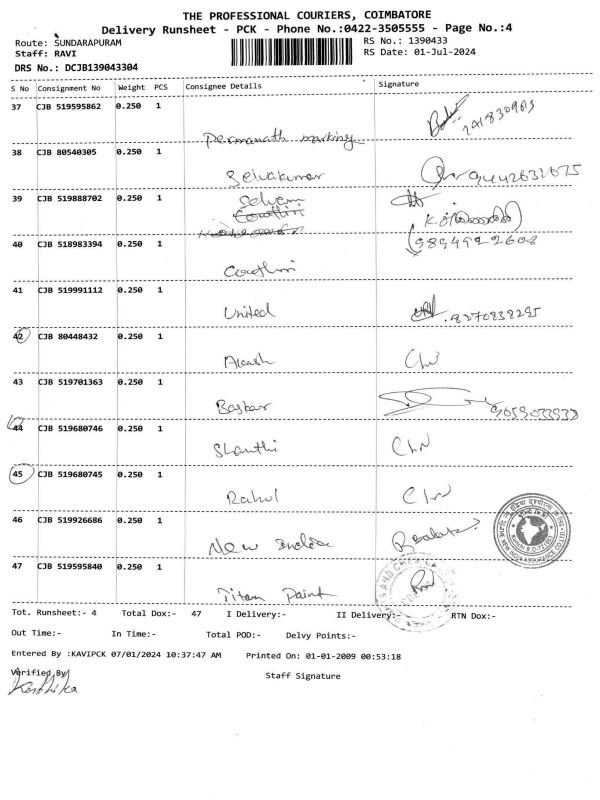 THE PROFESSIONAL COURIERS, COIMBATORE
Delivery Runsheet - PCK - Phone No.:0422-3505555 - Page No.:4
Route: SUNDARAPURAM RS No.: 1390433
Staff: RAVI RS Date: 01-Jul-2024
DRS No.: DCJB139043304
S No Consignment No Weight PCS Consignee Details Signature
37 CJB 519595862 0.250 1
38 CJB 80540305 0.250 1
Selvakumar
39 CJB 519888702 0.250 1 Selvam
40 CJB 518983394 0.250 1
9894922608
41 CJB 519991112 0.250 1
United 8270838295
42 CJB 80448432 0.250 1
Akash
43 CJB 519701363 0.250 1
9659033933
44 CJB 519680746 0.250 1
Shanthi
45 CJB 519680745 0.250 1
Rahul
46 CJB 519926686 0.250 1
New India
47 CJB 519595840 0.250 1
Titan Paint
Tot. Runsheet:- 4 Total Dox:- 47 I Delivery:- II Delivery:- RTN Dox:-
Out Time:- In Time:- Total POD:- Delvy Points:-
Entered By :KAVIPCK 07/01/2024 10:37:47 AM Printed On: 01-01-2009 00:53:18
Verified By Staff Signature
Karthika